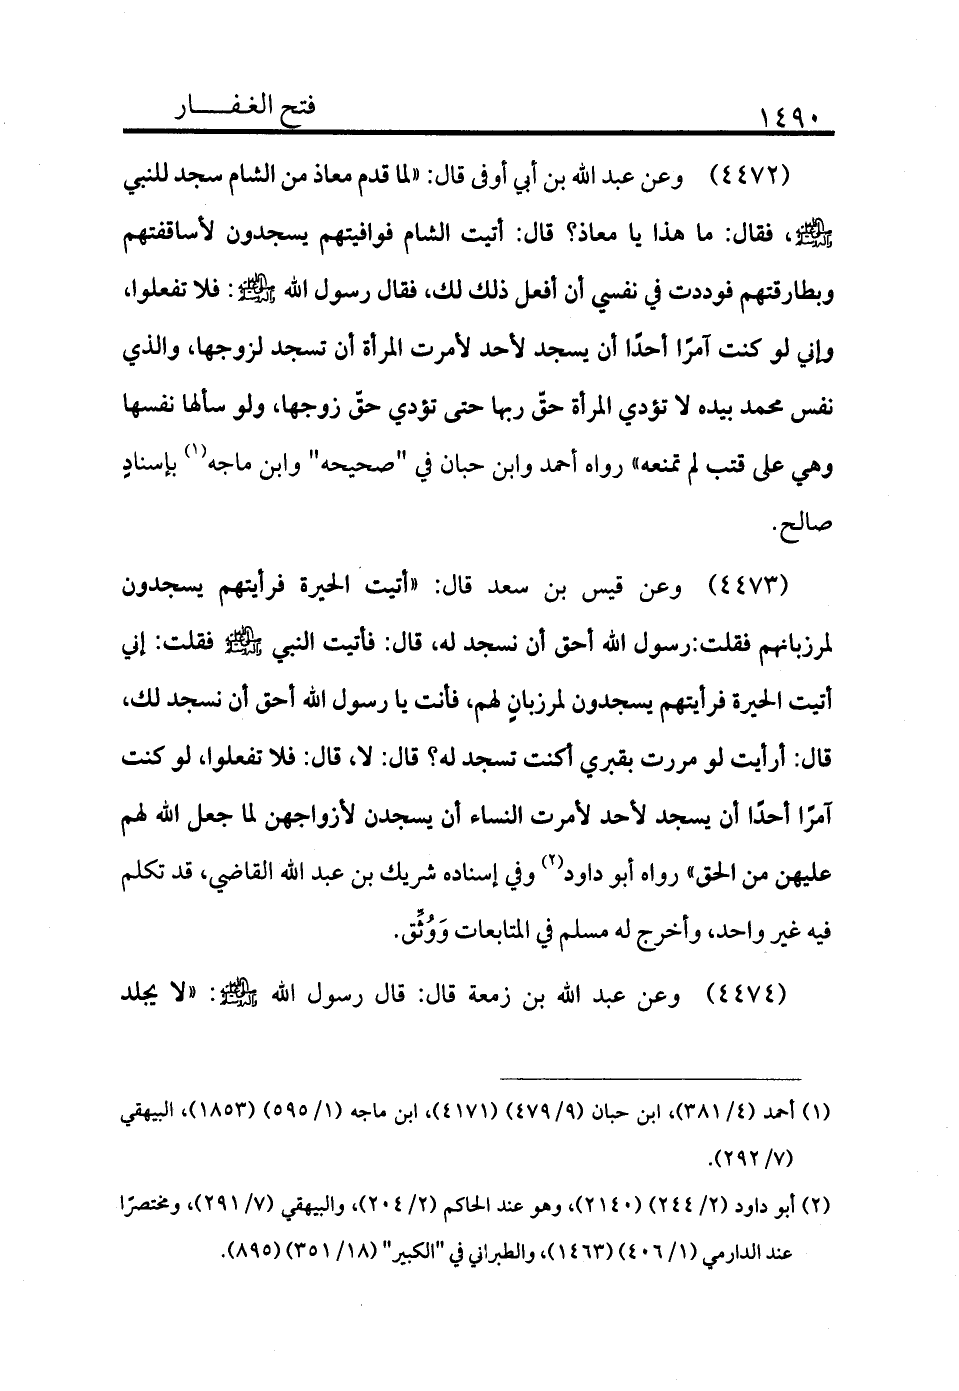 ١٤٩٠ فتح الغفـــــار
(٤٤٧٢) وعن عبد الله بن أبي أوفى قال: «لما قدم معاذ من الشام سجد للنبي
ﷺ، فقال: ما هذا يا معاذ؟ قال: أتيت الشام فوافيتهم يسجدون لأساقفتهم
وبطارقتهم فوددت في نفسي أن أفعل ذلك لك، فقال رسول الله ﷺ: فلا تفعلوا،
وإني لو كنت آمرًا أحدًا أن يسجد لأحد لأمرت المرأة أن تسجد لزوجها، والذي
نفس محمد بيده لا تؤدي المرأة حقّ ربها حتى تؤدي حقّ زوجها، ولو سألها نفسها
وهي على قتب لم تمنعه» رواه أحمد وابن حبان في "صحيحه" وابن ماجه(١) بإسنادٍ
صالح.
(٤٤٧٣) وعن قيس بن سعد قال: «أتيت الحيرة فرأيتهم يسجدون
لمرزبانهم فقلت:رسول الله أحق أن نسجد له، قال: فأتيت النبي ﷺ فقلت: إني
أتيت الحيرة فرأيتهم يسجدون لمرزبانٍ لهم، فأنت يا رسول الله أحق أن نسجد لك،
قال: أرأيت لو مررت بقبري أكنت تسجد له؟ قال: لا، قال: فلا تفعلوا، لو كنت
آمرًا أحدًا أن يسجد لأحد لأمرت النساء أن يسجدن لأزواجهن لما جعل الله لهم
عليهن من الحق» رواه أبو داود(٢) وفي إسناده شريك بن عبد الله القاضي، قد تكلم
فيه غير واحد، وأخرج له مسلم في المتابعات وَوُثِّق.
(٤٤٧٤) وعن عبد الله بن زمعة قال: قال رسول الله ﷺ: «لا يجلد
(١) أحمد (٤/ ٣٨١)، ابن حبان (٩/ ٤٧٩) (٤١٧١)، ابن ماجه (١/ ٥٩٥) (١٨٥٣)، البيهقي
(٧/ ٢٩٢).
(٢) أبو داود (٢/ ٢٤٤) (٢١٤٠)، وهو عند الحاكم (٢/ ٢٠٤)، والبيهقي (٧/ ٢٩١)، ومختصرًا
عند الدارمي (١/ ٤٠٦) (١٤٦٣)، والطبراني في "الكبير" (١٨/ ٣٥١) (٨٩٥).